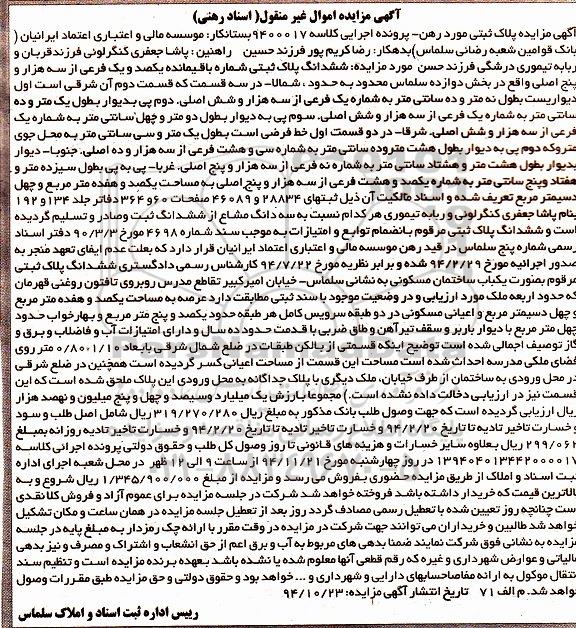 آگهی مزایده اموال غیر منقول( اسناد رهنی)
آگهی مزایده پلاک ثبتی مورد رهن- پرونده اجرایی کلاسه ۹۴۰۰۰۱۷بستانکار: موسسه مالی و اعتباری اعتماد ایرانیان (
بانک قوامین شعبه رضائی سلماس)بدهکار: رضا کریم پور فرزند حسین راهنین : پاشا جعفری کنگرلوئی فرزند قربان و
ربابه تیموری درشگی فرزند حسن مورد مزایده: ششدانگ پلاک ثبتی شماره باقیمانده یکصد و یک فرعی از سه هزار و
پنج اصلی واقع در بخش دوازده سلماس محدود به حدود ، شمالا- در سه قسمت که قسمت دوم آن شرقی است اول
دیواریست بطول نه متر و ده سانتی متر به شماره یک فرعی از سه هزار و شش اصلی. دوم پی بدیوار بطول یک متر و ده
سانتی متر به شماره یک فرعی از سه هزار و شش اصلی. سوم پی به دیوار بطول دو متر و چهل سانتی متر به شماره یک
فرعی از سه هزار و شش اصلی. شرقا- در دو قسمت اول خط فرضی است بطول یک متر و سی سانتی متر به محل جوی
متروکه دوم پی به دیوار بطول هشت متروده سانتی متر به شماره سی و هشت فرعی از سه هزار و ده اصلی. جنوبا- دیوار
بدیوار بطول هشت متر و هشتاد سانتی متر به شماره نه فرعی از سه هزار و پنج اصلی. غربا- پی به پی بطول سیزده متر و
هفتاد وپنج سانتی متر به شماره یکصد و هشت فرعی از سه هزار و پنج اصلی به مساحت یکصد و هفده متر مربع و چهل
دسیمتر مربع تعریف شده و اسناد مالکیت آن ذیل ثبتهای ۲۸۸۳۴ و ۴۶۰۸۹ صفحات ۶۰و ۳۶۴ دفاتر جلد ۱۳۴و ۱۹۲
بنام پاشا جعفری کنگرلوئی و ربابه تیموری هر کدام نسبت به سه دانگ مشاع از ششدانگ ثبت وصادر و تسلیم گردیده
است و ششدانگ پلاک ثبتی مرقوم بانضمام توابع و امتیازات به موجب سند شماره ۴۶۹۸ مورخ ۹۰/۳/۲۳ دفتر اسناد
رسمی شماره پنج سلماس در قید رهن موسسه مالی و اعتباری اعتماد ایرانیان قرار دارد که بعلت عدم ایفای تعهد منجر به
صدور اجرائیه مورخ ۹۴/۲/۲۹ شده و برابر نظریه مورخ ۹۴/۷/۲۲ کارشناس رسمی دادگستری ششدانگ پلاک ثبتی
مرقوم بصورت یکباب ساختمان مسکونی به نشانی سلماس- خیابان امیرکبیر تقاطع مدرس روبروی تافتون روغنی قهرمان
که حدود اربعه ملک مورد ارزیابی و در وضعیت موجود با سند ثبتی مطابقت دارد عرصه به مساحت یکصد و هفده متر مربع
و چهل دسیمتر مربع و اعیانی مسکونی در دو طبقه سرویس کامل هر طبقه حدود یکصد و پنج متر مربع و بهارخواب حدود
چهل متر مربع با دیوار باربر و سقف تیرآهن و طاق ضربی با قدمت حدود ده سال و دارای امتیازات آب و فاضلاب و برق و
گاز توصیف اجمالی شده است توضیح اینکه قسمتی از بالکن طبقات در ضلع شمال شرقی بابعاد ۱/۱۰×۰/۸۰ متر روی
فضای ملکی مدرسه احداث شده است مساحت این قسمت از مساحت اعیانی کسر گردیده است همچنین در ضلع شرقی
در محل ورودی به ساختمان از طرف خیابان، ملک دیگری با پلاک جداگانه به محل ورودی این پلاک ملحق شده است که این
قسمت نیز در ارزیابی دخالت داده نشده است.) مجموعا بارزش یک میلیارد و سیصد و چهل و پنج میلیون و نهصد هزار
ریال ارزیابی گردیده است که جهت وصول طلب بانک مذکور به مبلغ ریال ۳۱۹/۲۷۰/۲۸۰ ریال شامل اصل طلب و سود
و خسارت تاخیر تادیه تا تاریخ ۹۴/۲/۲۰ و خسارت تاخیر تادیه تا تاریخ ۹۴/۲/۲۰ و خسارت تاخیر تادیه روزانه بمبلغ
۲۹۹/۰۶۲ ریال بعلاوه سایر خسارات و هزینه های قانونی تا روز وصول کل طلب و حقوق دولتی پرونده اجرائی کلاسه
۱۳۹۴۰۴۰۱۳۴۴۲۰۰۰۰۱۷ در روز چهارشنبه مورخ ۹۴/۱۱/۲۱ از ساعت ۹ الی ۱۲ ظهر در محل شعبه اجرای اداره
ثبت اسناد و املاک از طریق مزایده حضوری بفروش می رسد و مزایده از مبلغ ۱/۳۴۵/۹۰۰/۰۰۰ ریال شروع و به
بالاترین قیمت که خریدار داشته باشد فروخته خواهد شد شرکت در جلسه مزایده برای عموم آزاد و فروش کلا نقدی
است چنانچه روز تعیین شده با تعطیل رسمی مصادف گردد روز بعد از تعطیل جلسه مزایده در همان ساعت و مکان تشکیل
خواهد شد طالبین و خریداران می توانند جهت شرکت در مزایده در وقت مقرر با ارائه چک رمزدار به مبلغ پایه در جلسه
مزایده به نشانی فوق شرکت نمایند ضمنا بدهی های مربوط به آب و برق اعم از حق انشعاب و اشتراک و مصرف و نیز بدهی
مالیاتی و عوارض شهرداری و غیره که رقم قطعی آنها معلوم شده یا نشده باشد بعهده برنده مزایده است و تنظیم سند
انتقال موکول به ارائه مفاصاحسابهای دارایی و شهرداری و ... خواهد بود و حقوق دولتی و حق مزایده طبق مقررات وصول
خواهد شد. م الف ۷۱ تاریخ انتشار آگهی مزایده: ۹۴/۱۰/۲۳
رییس اداره ثبت اسناد و املاک سلماس